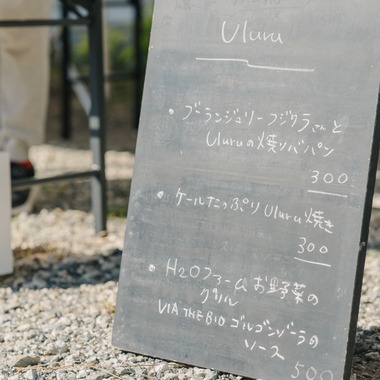 Uluru
• ブーランジュリーフジタラさんと
Uluruの焼リバパン
300
• ケールたっぷりUluru焼き
300
• H2Oファームお野菜の
グリル
VIA THE BIO ゴルゴンゾーラの
ソース
500